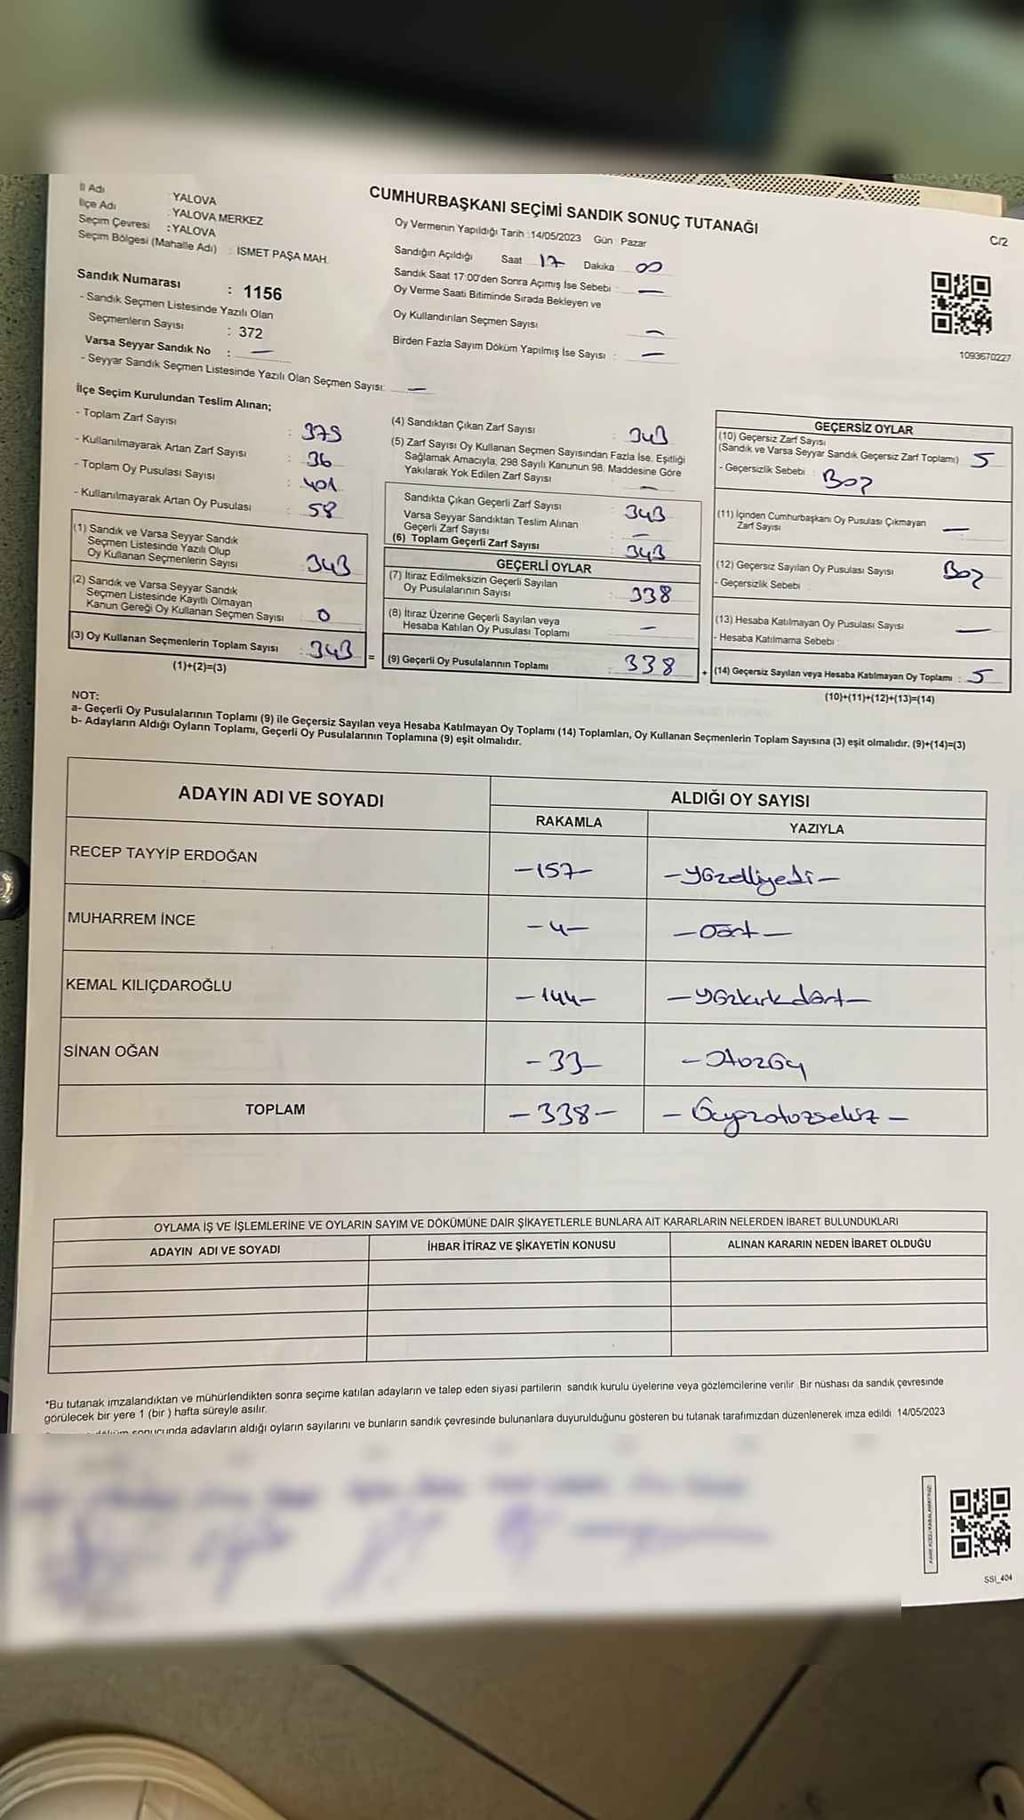 CUMHURBAŞKANI SEÇİMİ SANDIK SONUÇ TUTANAĞI
C/2
İl Adı : YALOVA
İlçe Adı : YALOVA MERKEZ
Seçim Çevresi : YALOVA
Seçim Bölgesi (Mahalle Adı) : İSMET PAŞA MAH.
Oy Vermenin Yapıldığı Tarih :14/05/2023 Gün Pazar
Sandığın Açıldığı Saat 17 Dakika 00
Sandık Saat 17:00'den Sonra Açımış İse Sebebi : —
Oy Verme Saati Bitiminde Sırada Bekleyen ve
Oy Kullandırılan Seçmen Sayısı —
Birden Fazla Sayım Döküm Yapılmış İse Sayısı : —
1093670227
Sandık Numarası : 1156
- Sandık Seçmen Listesinde Yazılı Olan
Seçmenlerin Sayısı : 372
Varsa Seyyar Sandık No : —
- Seyyar Sandık Seçmen Listesinde Yazılı Olan Seçmen Sayısı: —
İlçe Seçim Kurulundan Teslim Alınan;
- Toplam Zarf Sayısı : 379
- Kullanılmayarak Artan Zarf Sayısı : 36
- Toplam Oy Pusulası Sayısı : 401
- Kullanılmayarak Artan Oy Pusulası : 58
(1) Sandık ve Varsa Seyyar Sandık
Seçmen Listesinde Yazılı Olup
Oy Kullanan Seçmenlerin Sayısı : 343
(2) Sandık ve Varsa Seyyar Sandık
Seçmen Listesinde Kayıtlı Olmayan
Kanun Gereği Oy Kullanan Seçmen Sayısı : 0
(3) Oy Kullanan Seçmenlerin Toplam Sayısı : 343 =
(1)+(2)=(3)
(4) Sandıktan Çıkan Zarf Sayısı : 343
(5) Zarf Sayısı Oy Kullanan Seçmen Sayısından Fazla İse, Eşitliği
Sağlamak Amacıyla, 298 Sayılı Kanunun 98. Maddesine Göre
Yakılarak Yok Edilen Zarf Sayısı —
Sandıkta Çıkan Geçerli Zarf Sayısı : 343
Varsa Seyyar Sandıktan Teslim Alınan
Geçerli Zarf Sayısı : —
(6) Toplam Geçerli Zarf Sayısı 343
GEÇERLİ OYLAR
(7) İtiraz Edilmeksizin Geçerli Sayılan
Oy Pusulalarının Sayısı : 338
(8) İtiraz Üzerine Geçerli Sayılan veya
Hesaba Katılan Oy Pusulası Toplamı : —
(9) Geçerli Oy Pusulalarının Toplamı : 338 +
GEÇERSİZ OYLAR
(10) Geçersiz Zarf Sayısı
(Sandık ve Varsa Seyyar Sandık Geçersiz Zarf Toplamı) 5
- Geçersizlik Sebebi : Boş
(11) İçinden Cumhurbaşkanı Oy Pusulası Çıkmayan
Zarf Sayısı —
(12) Geçersiz Sayılan Oy Pusulası Sayısı Boş
- Geçersizlik Sebebi :
(13) Hesaba Katılmayan Oy Pusulası Sayısı —
- Hesaba Katılmama Sebebi :
(14) Geçersiz Sayılan veya Hesaba Katılmayan Oy Toplamı : 5
(10)+(11)+(12)+(13)=(14)
NOT:
a- Geçerli Oy Pusulalarının Toplamı (9) ile Geçersiz Sayılan veya Hesaba Katılmayan Oy Toplamı (14) Toplamları, Oy Kullanan Seçmenlerin Toplam Sayısına (3) eşit olmalıdır. (9)+(14)=(3)
b- Adayların Aldığı Oyların Toplamı, Geçerli Oy Pusulalarının Toplamına (9) eşit olmalıdır.
ADAYIN ADI VE SOYADI ALDIĞI OY SAYISI
RAKAMLA YAZIYLA
RECEP TAYYİP ERDOĞAN -157- -yüzelliyedi-
MUHARREM İNCE -4- -Dört-
KEMAL KILIÇDAROĞLU -144- -yüzkırkdört-
SİNAN OĞAN -33- -Otuzüç
TOPLAM -338- -Üçyüzotuzsekiz-
OYLAMA İŞ VE İŞLEMLERİNE VE OYLARIN SAYIM VE DÖKÜMÜNE DAİR ŞİKAYETLERLE BUNLARA AİT KARARLARIN NELERDEN İBARET BULUNDUKLARI
ADAYIN ADI VE SOYADI İHBAR İTİRAZ VE ŞİKAYETİN KONUSU ALINAN KARARIN NEDEN İBARET OLDUĞU
*Bu tutanak imzalandıktan ve mühürlendikten sonra seçime katılan adayların ve talep eden siyasi partilerin sandık kurulu üyelerine veya gözlemcilerine verilir. Bir nüshası da sandık çevresinde
görülecek bir yere 1 (bir ) hafta süreyle asılır.
sonucunda adayların aldığı oyların sayılarını ve bunların sandık çevresinde bulunanlara duyurulduğunu gösteren bu tutanak tarafımızdan düzenlenerek imza edildi 14/05/2023
SSI_404